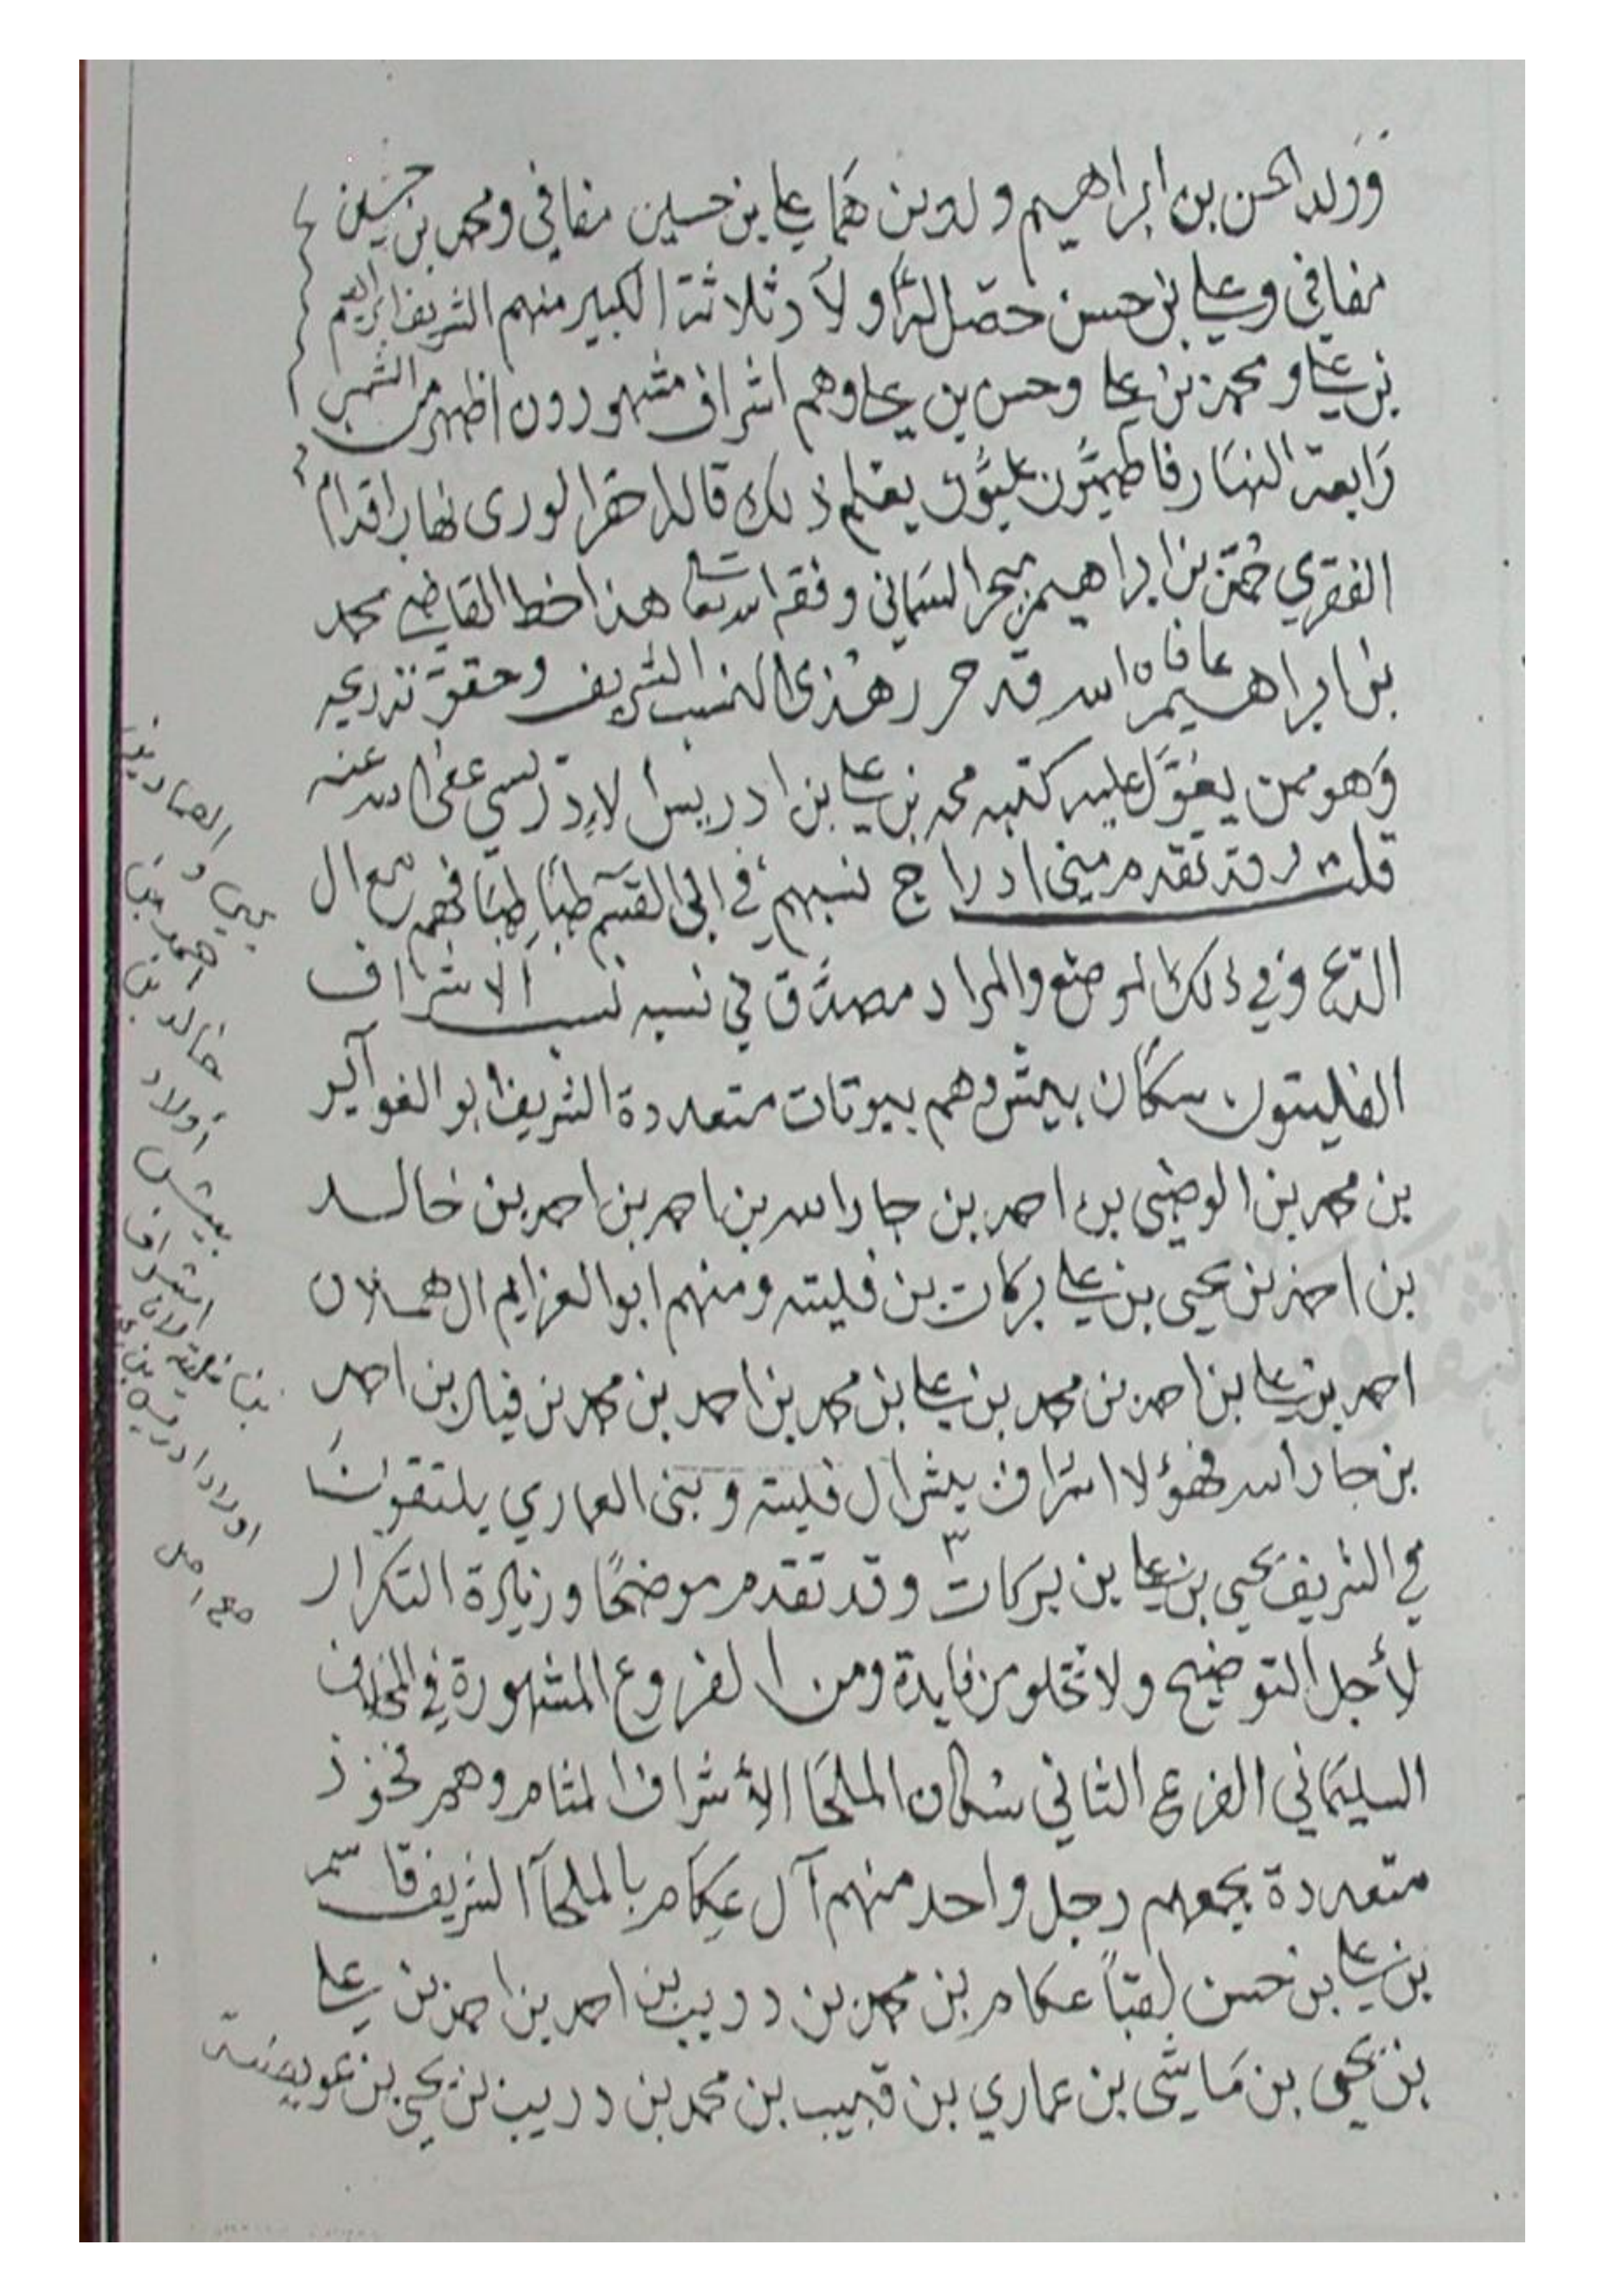 وولد الحسن بن ابراهيم ولدين هما علي بن حسين مفافي ومحمد بن حسين
مفافي وعلي بن حسن حصّل له أولاد ثلاثة الكبير منهم الشريف ابراهيم
بن علي ومحمد بن علي وحسن بن علي وهم اشراف مشهورون اظهر من الشمس
رابعة النهار فاطميّون عليّون يعلم ذلك قاله احقر الورى
الفقري بن ابراهيم وفقه الله تعالى هذا خط القاضي محمد
بن ابراهيم عافاه الله قد حرر هذي النسب الشريف وحقق تدريجه
وهو ممن يعوّل عليه كتبه محمد بن علي بن ادريس الادريسي عفى الله عنه
قلت وقد تقدم مني ادراج نسبهم في ابي القسم طباطبا فهم مع ال
في ذلك الموضع والمراد مصدّق في نسبه نسب الاشراف
الفليتون سكان بيش وهم بيوتات متعددة الشريف ابو الفواكير
بن محمد بن الوضيي بن احمد بن جار الله بن احمد بن احمد بن خالد
بن احمد بن يحيى بن علي بركات بن فليته ومنهم ابو العزايم ال هملان
احمد بن علي بن احمد بن محمد بن علي بن محمد بن احمد بن محمد بن احمد
بن جار الله فهؤلا اشراف بيش ال فليته وبني العماري يلتقون
في الشريف يحيى بن علي بن بركات وقد تقدم موضحًا وزيادة التكرار
لأجل التوضيح ولا تخلو من فايدة ومن الفروع المشهورة في المخلاف
السليماني الفرع الثاني سكان الملحا الأشراف لمثام وهم فخوذ
متعددة يجمعهم رجل واحد منهم آل عكام بالملحآ الشريف قاسم
بن علي بن حسن لقباً عكام بن محمد بن دريب بن احمد بن احمد بن علي
بن يحيى بن ماشي بن عماري بن قهيب بن محمد بن دريب بن يحيى بن
يحيى و
احمد بن
خالد بن
أولاد
بيش
اشراف
اولاد ادريس بن